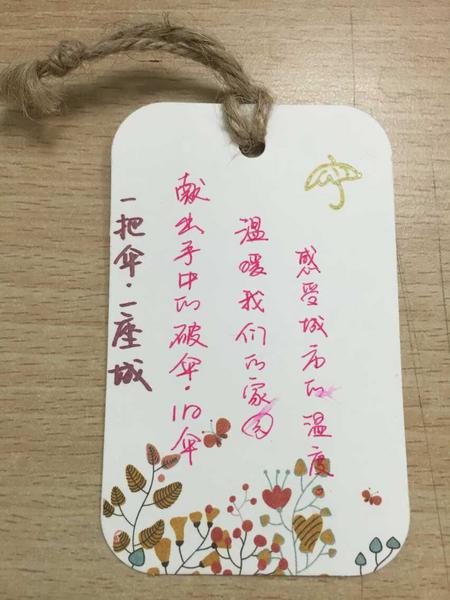 一把伞·一座城
献出手中的破伞·旧伞
温暖我们的家园
感受城市的温度